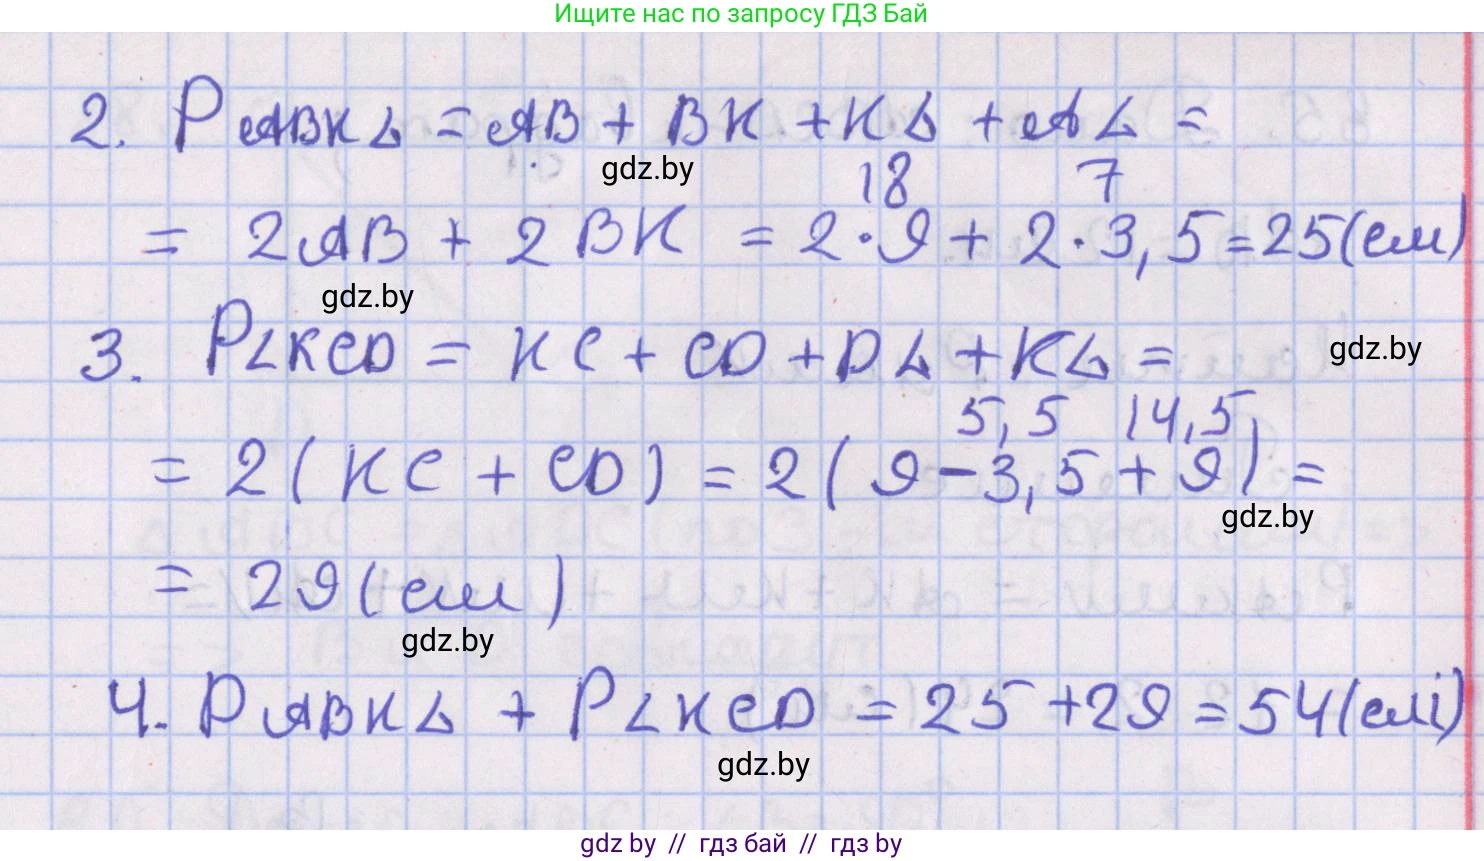 Ищите нас по запросу ГДЗ Бай
2. P ABKL = AB + BK + KL + AL =
gdz.by
18 7
= 2AB + 2BK = 2·9 + 2·3,5 = 25(см)
gdz.by
3. PLKCD = KC + CD + DL + KL =
gdz.by
5,5 14,5
= 2(KC + CD) = 2(9 - 3,5 + 9) =
gdz.by
= 29(см)
gdz.by
4. PABKL + PLKCD = 25 + 29 = 54(см)
gdz.by
gdz by // гдз бай // гдз by